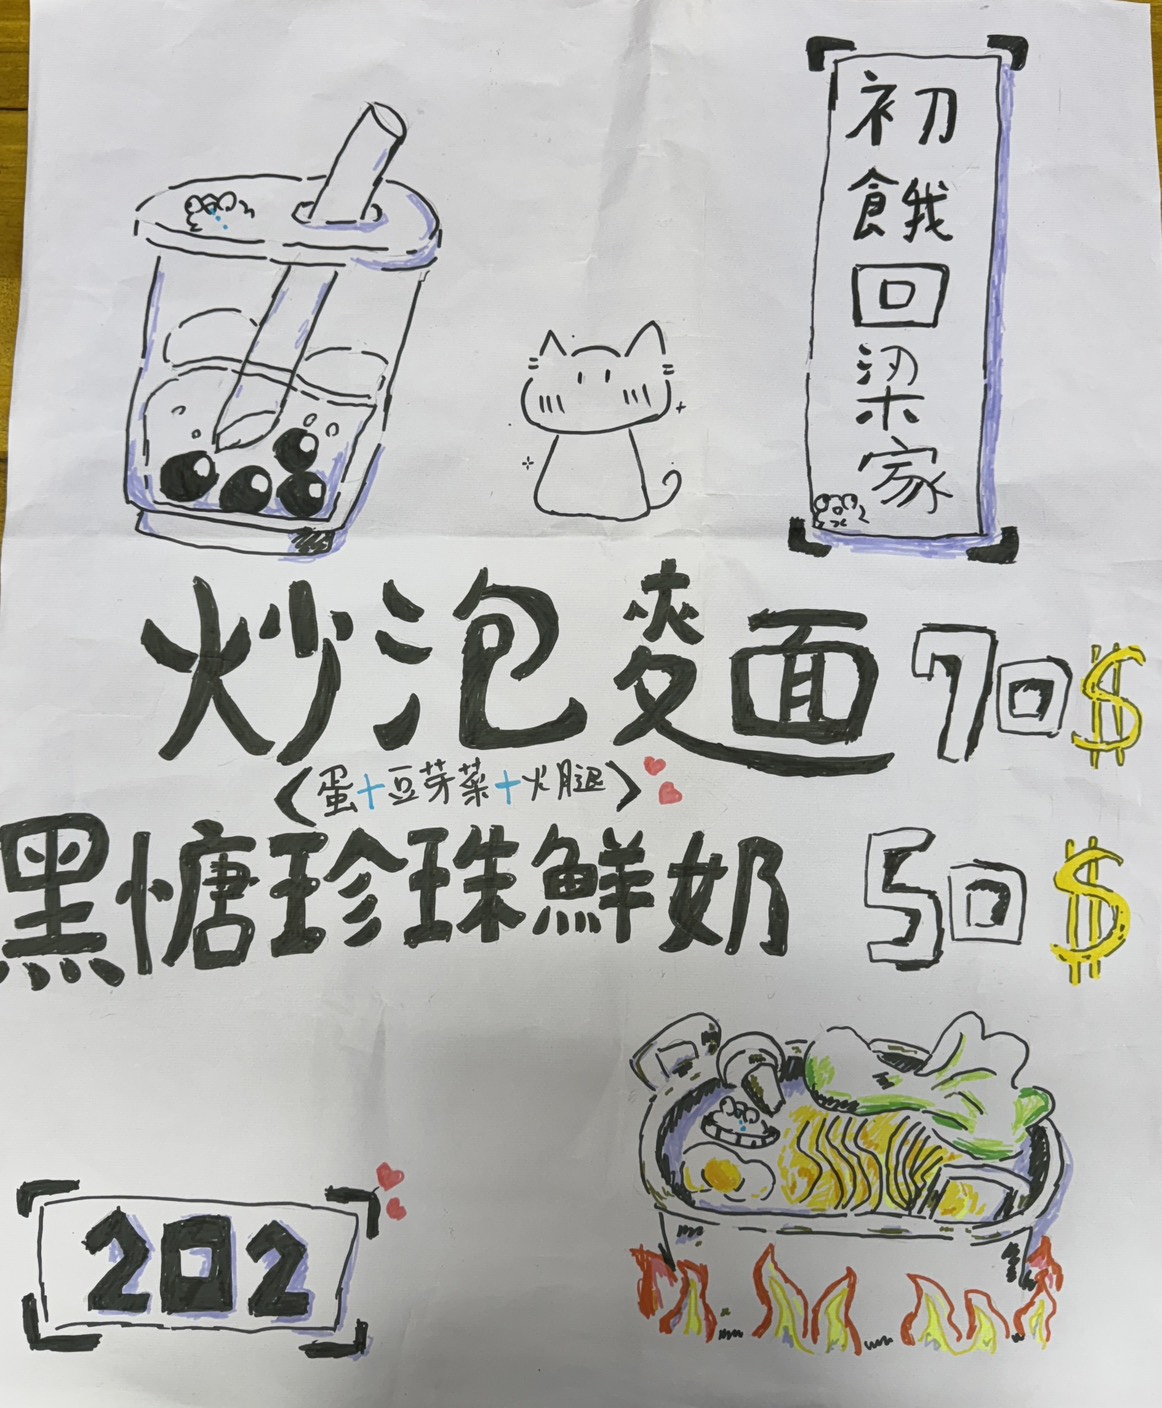 初餓回梁家
炒泡麵 70$
〈蛋+豆芽菜+火腿〉
黑糖珍珠鮮奶 50$
202